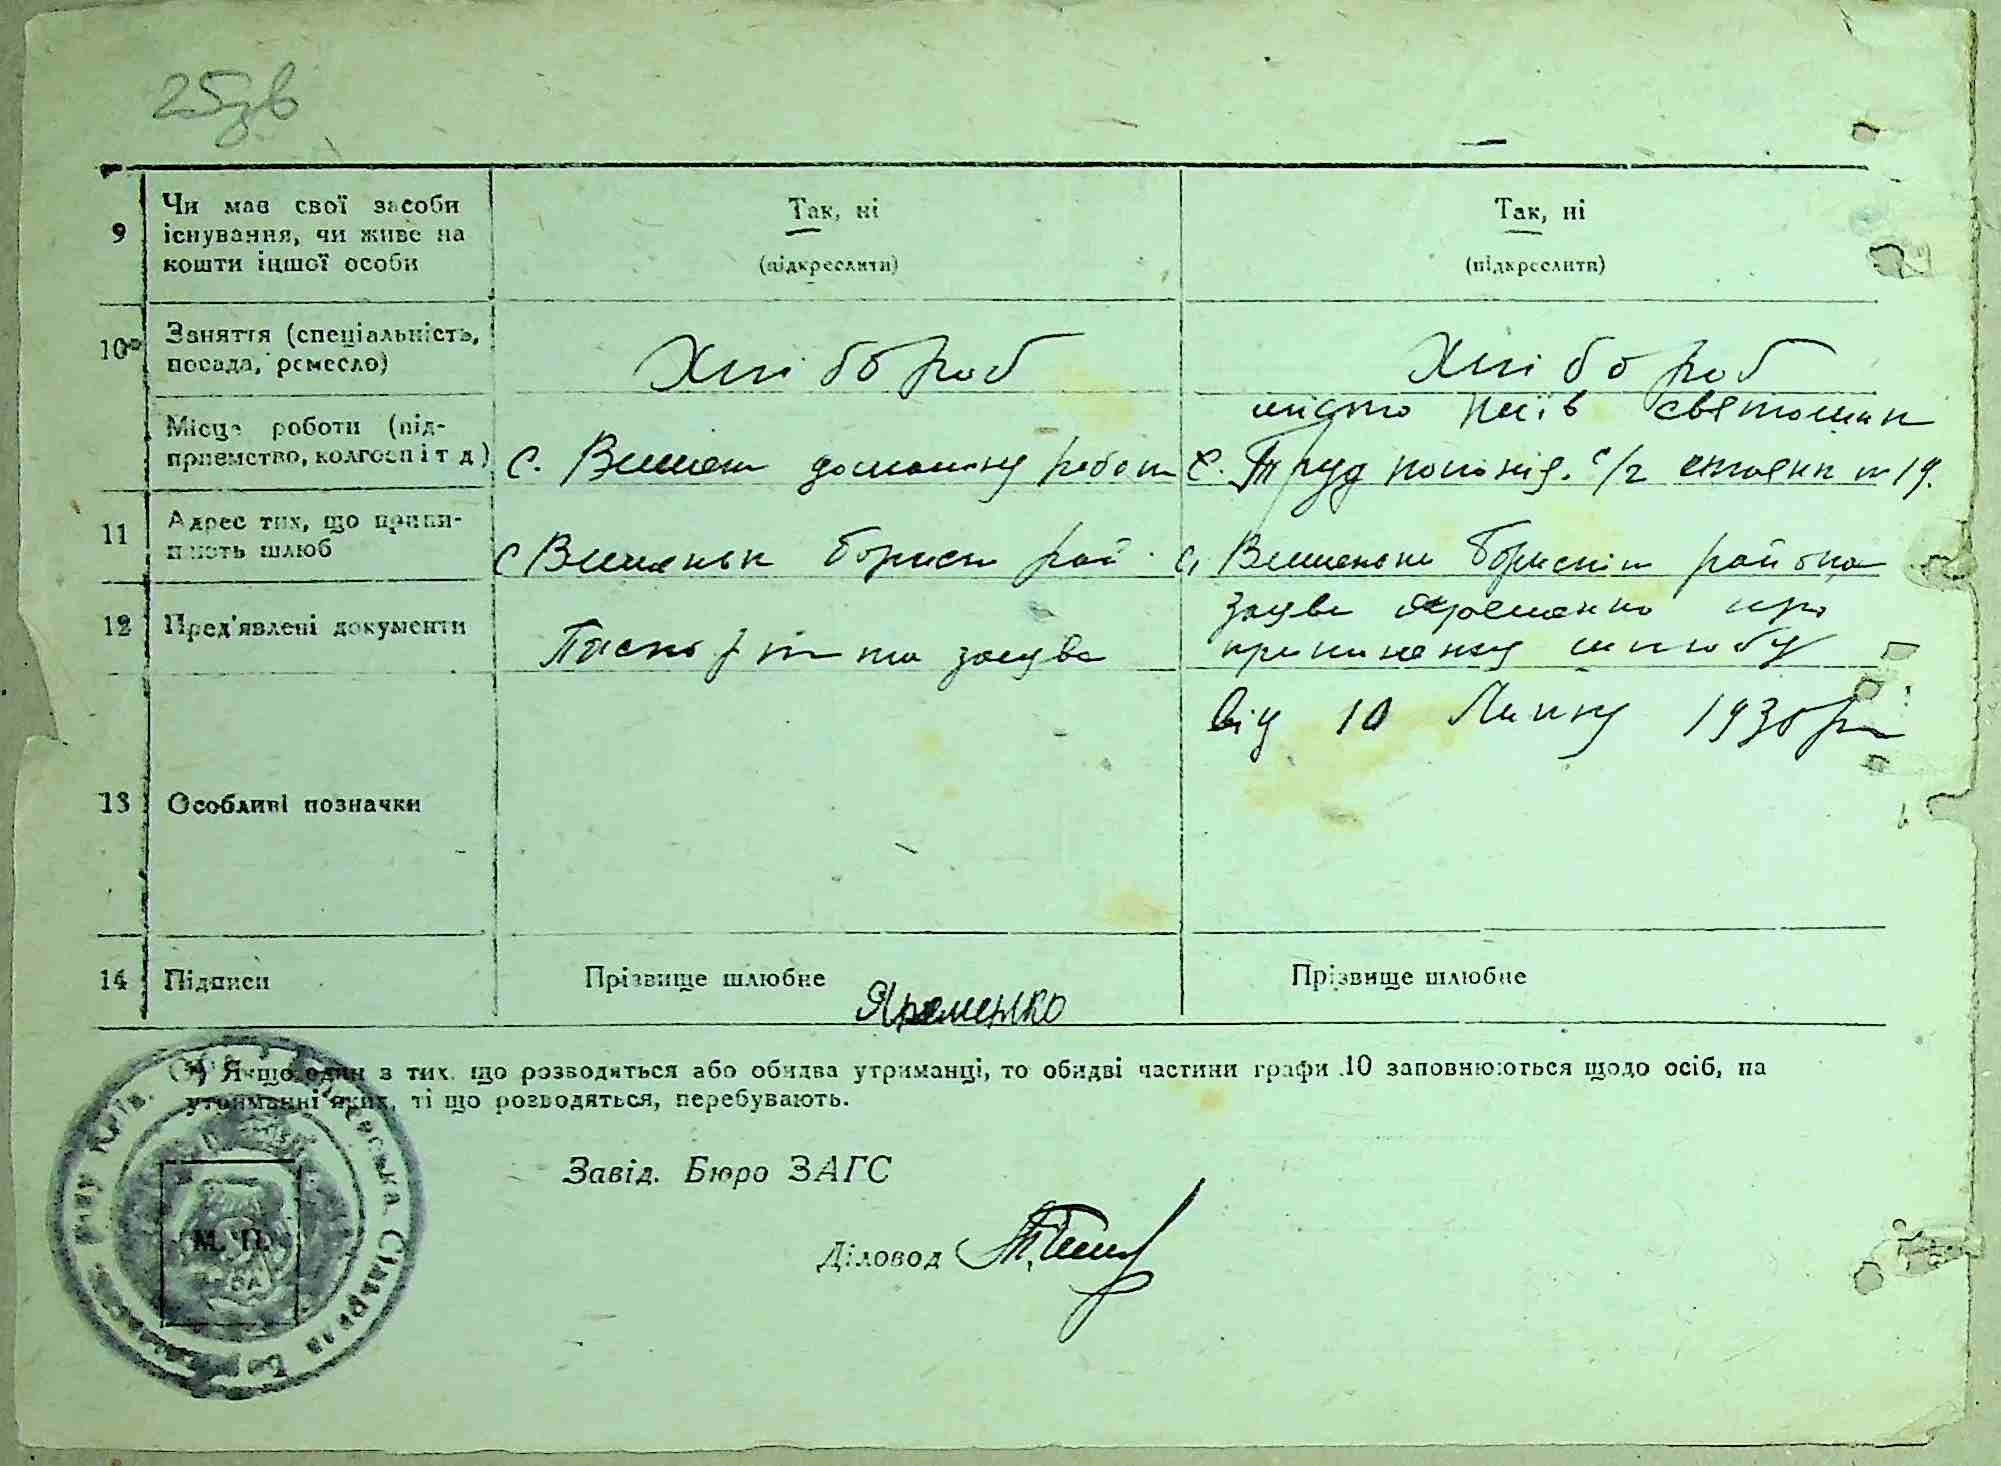 25зв
9
Чи має свої засоби
існування, чи живе на
кошти іншої особи
Так, ні
(підкреслити)
Так, ні
(підкреслити)
10*
Заняття (спеціальність,
посада, ремесло)
Хлібороб
Хлібороб
Місце роботи (під-
приємство, колгосп і т д)
с. Вишен домашну работ
місто Київ Святошин
с. Труд колонія. с/г 19.
11
Адрес тих, що припи-
няють шлюб
с Вишеньк Борисп рай
с. Вишеньки Бориспіль района
12
Пред'явлені документи
Паспорт та заява
заява Яременко про
припинення шлюбу
від 10 Липня 1936 р
13
Особливі позначки
14
Підписи
Прізвище шлюбне
Яременко
Прізвище шлюбне
*) Якщо один з тих, що розводяться або обидва утриманці, то обидві частини графи 10 заповнюються щодо осіб, на
утриманні яких, ті що розводяться, перебувають.
Завід. Бюро ЗАГС
М. П.
Діловод